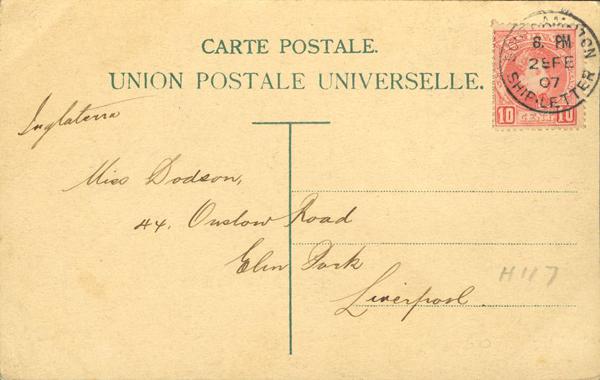 CARTE POSTALE.
UNION POSTALE UNIVERSELLE.
SOUTHAMPTON
6. PM
28 FE
07
SHIP-LETTER
10 10
Inglaterra
Miss Dodson,
44. Onslow Road
Elm Park
Liverpool.
H117